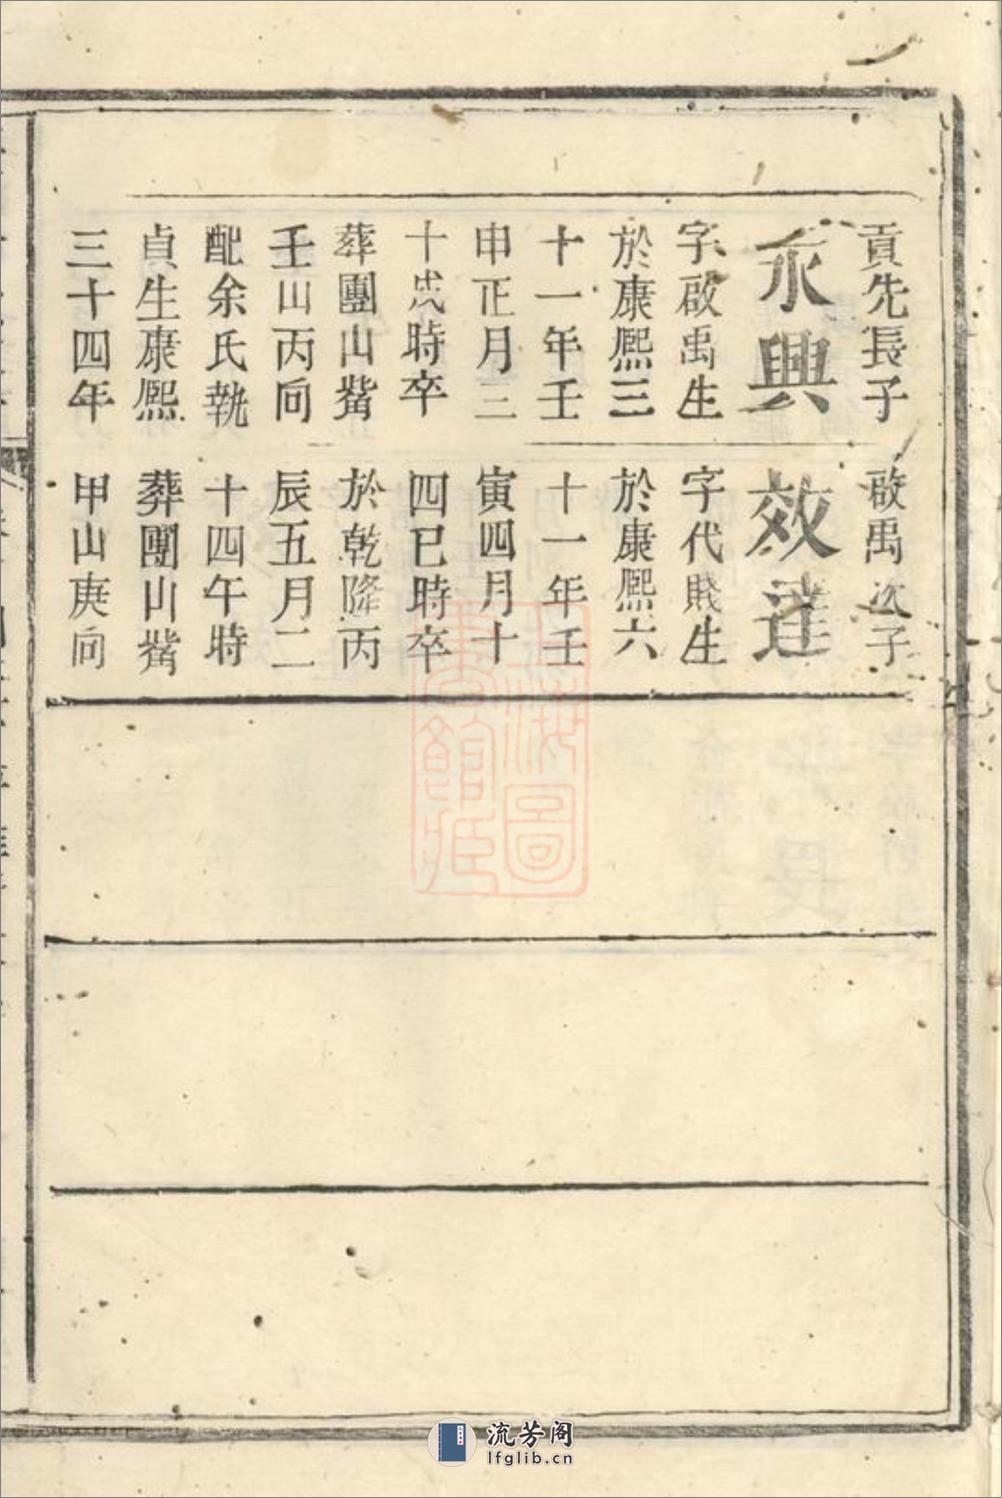 貢先長子
永興
字啟禹生
於康熙三
十一年壬
申正月三
十戌時卒
葬團山觜
壬山丙向
配余氏執
貞生康熙
三十四年
啟禹次子
效達
字代賤生
於康熙六
十一年壬
寅四月十
四巳時卒
於乾隆丙
辰五月二
十四午時
葬團山觜
甲山庚向
上海圖
書館藏
流芳阁
lfglib.cn